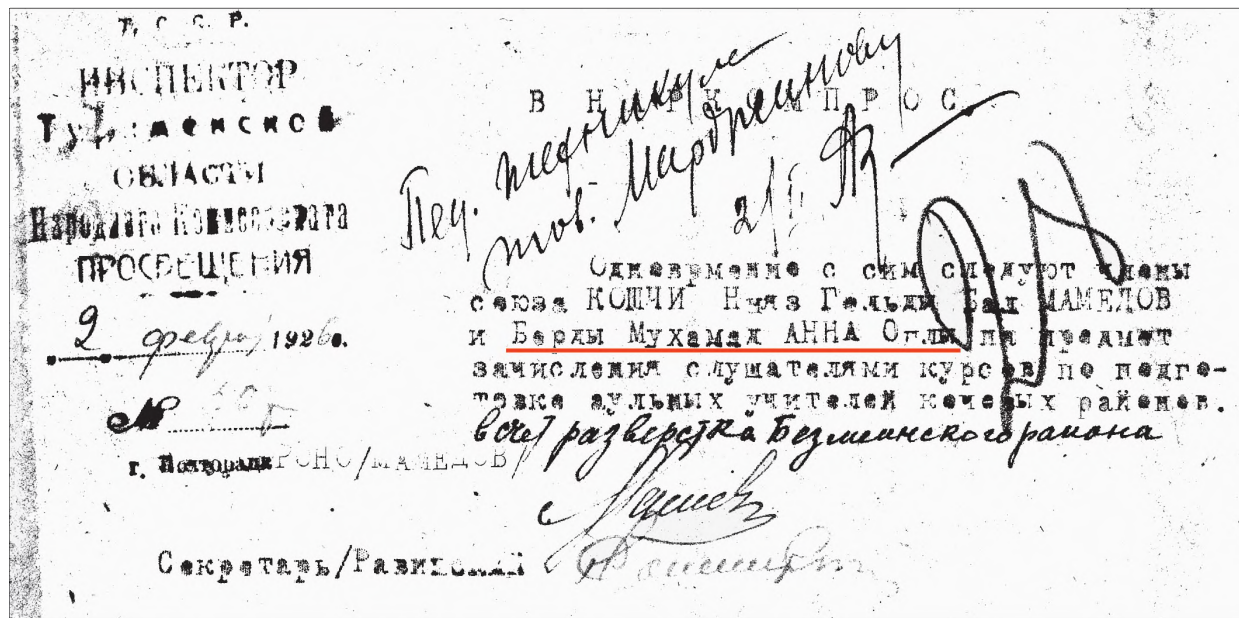 Т. С. С. Р.
ИНСПЕКТОР
Туркменской
ОБЛАСТИ
Народного Комиссариата
ПРОСВЕЩЕНИЯ
2 феврал 1926г.
№
г. Полторацк РОНО/МАМЕДОВ/
В НАРКОМПРОС.
Пед. техникум
тов.
2/II
Одновремен­но с сим следуют члены
союза КОШЧИ Нияз Гельды Бал МАМЕДОВ
и Берды Мухамад АННА Оглы на предмет
зачисления слушателями курсов по подго-
товке аульных учителей кочевых районов.
в счет разверстка Безмеинского района
Секретарь/Равинский